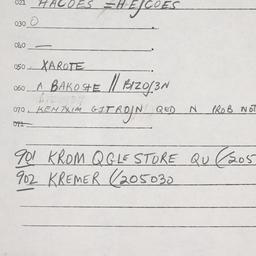 021 HACOES = HEJCOES
030 O
040 —
050. XAROTE
060. A BAKOSHE // BIZOJ3N
070. KENJXIM GJTROJN QED N PROB NOT
071
901 KROM QGLE STORE QU (/205
902 KREMER (/205030